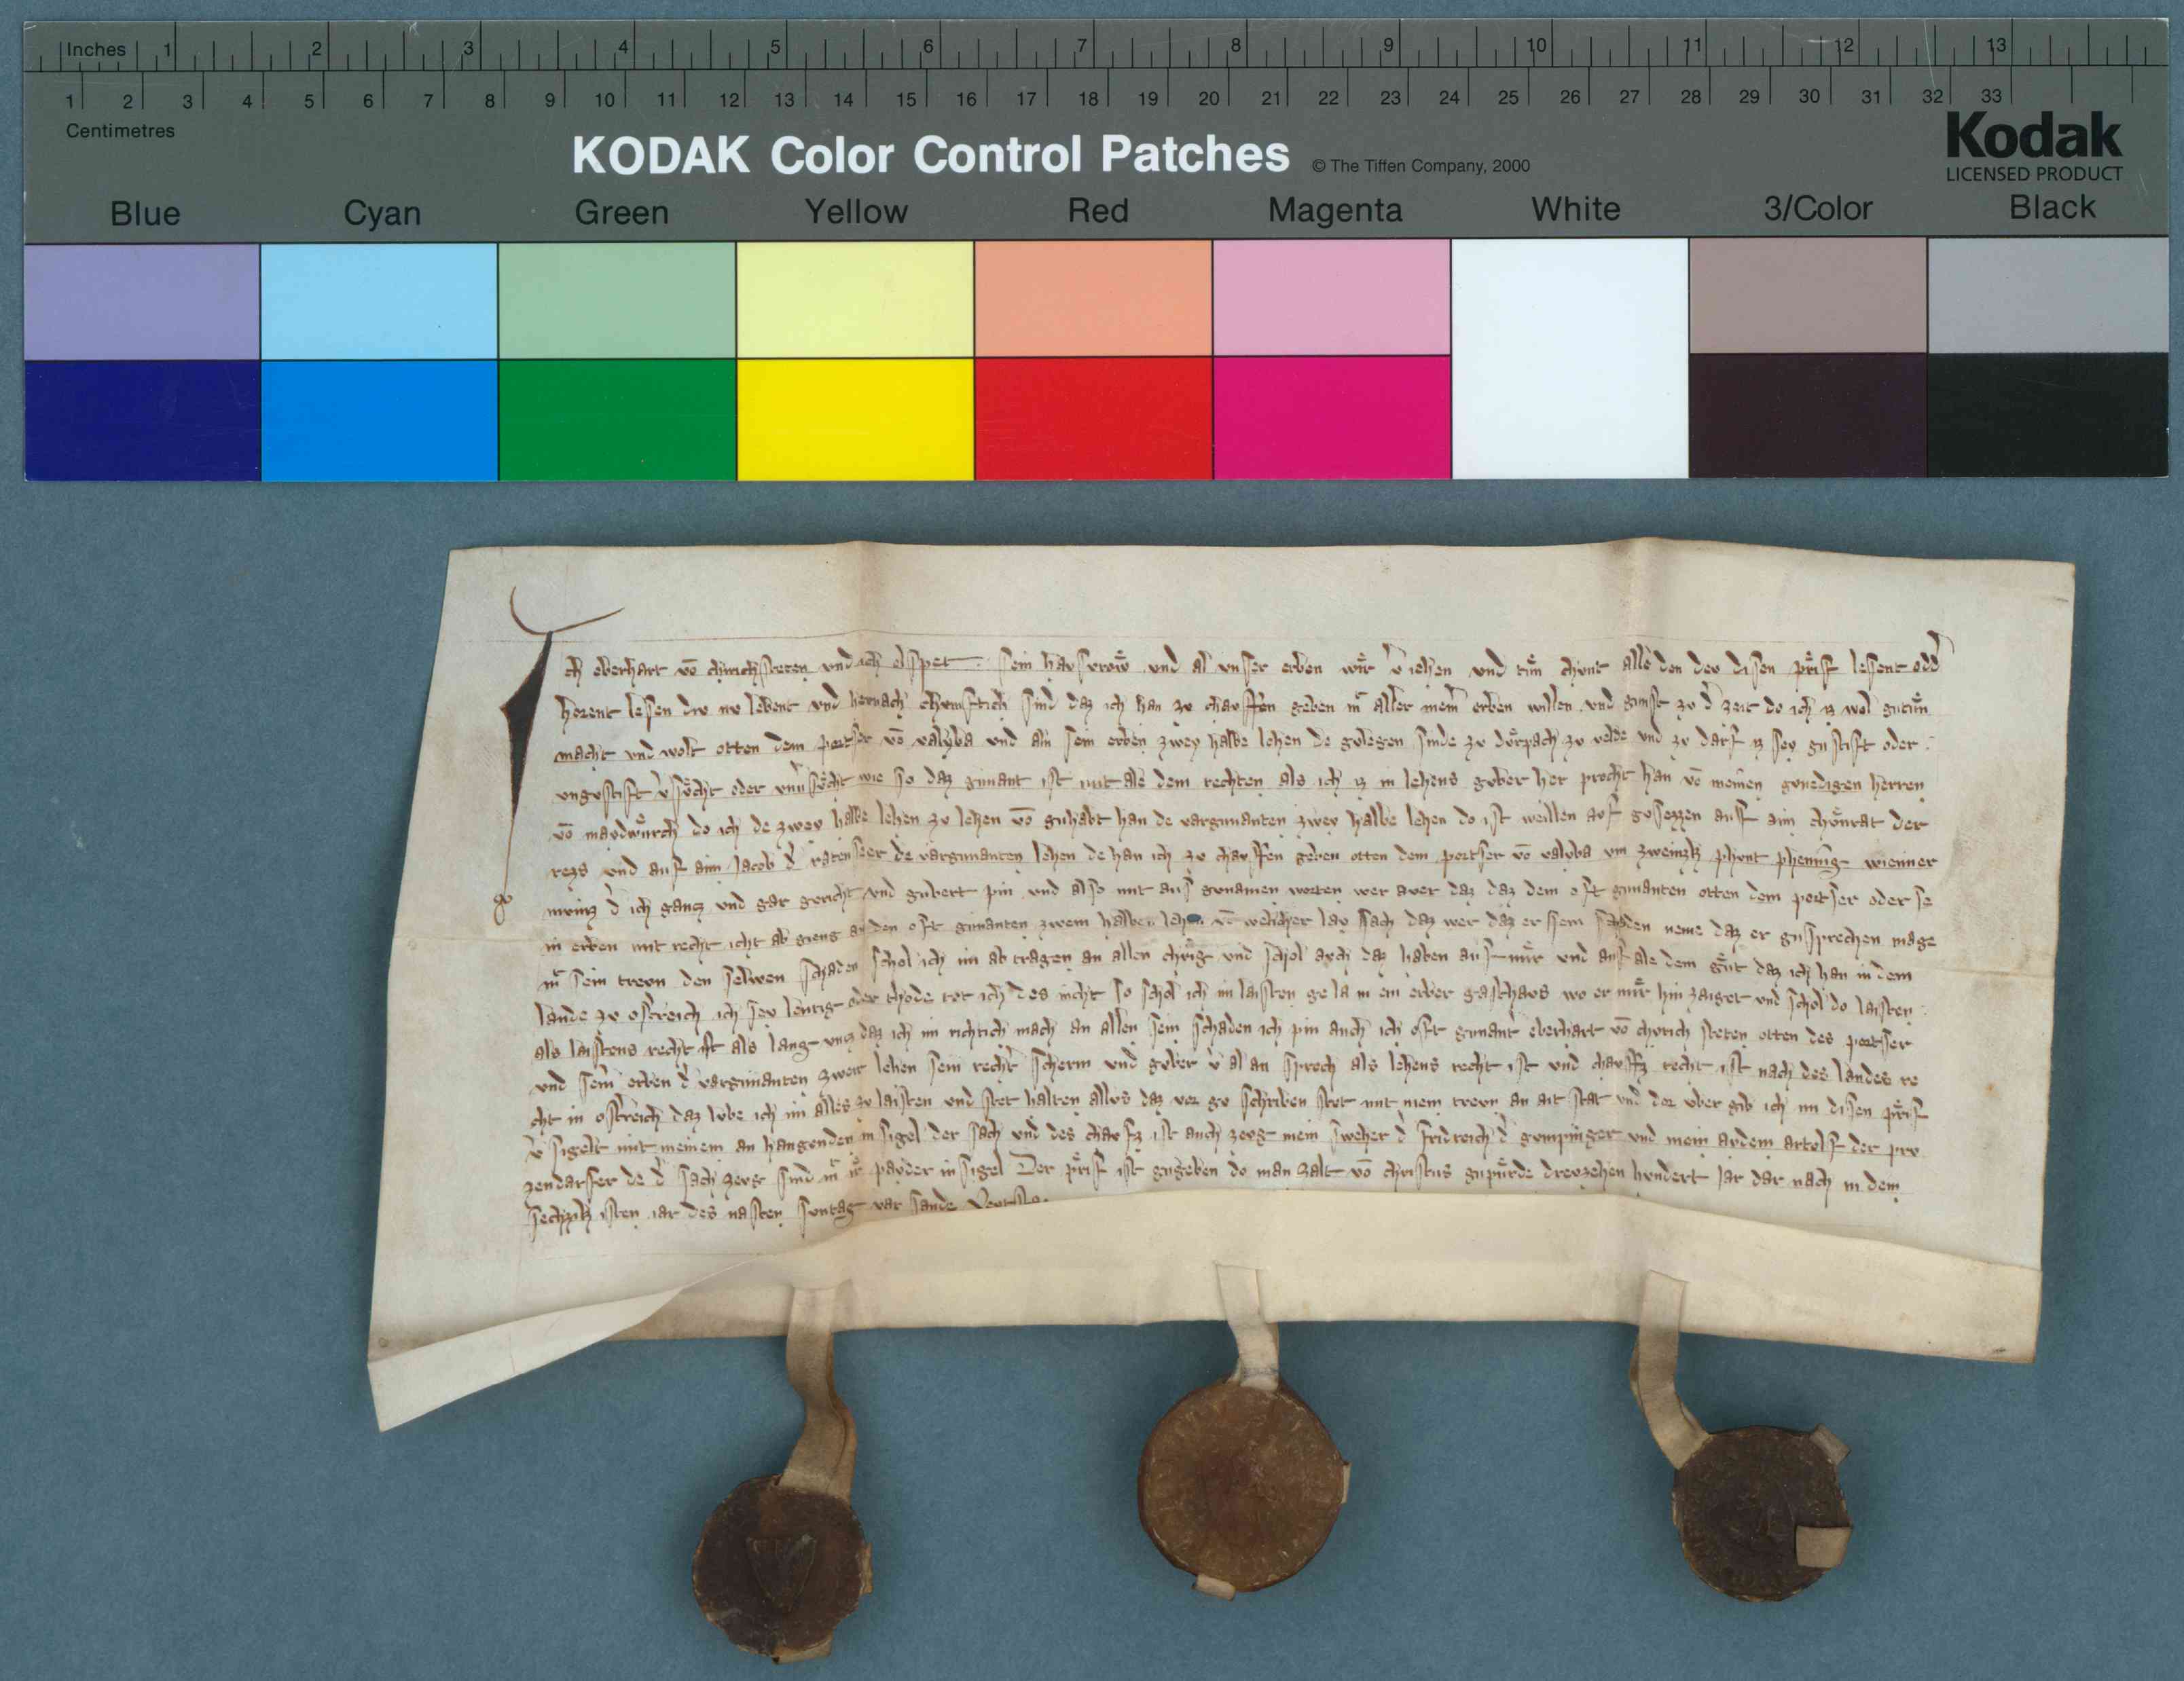 Inches 1 2 3 4 5 6 7 8 9 10 11 12 13
1 2 3 4 5 6 7 8 9 10 11 12 13 14 15 16 17 18 19 20 21 22 23 24 25 26 27 28 29 30 31 32 33
Centimetres
KODAK Color Control Patches © The Tiffen Company, 2000
Kodak
LICENSED PRODUCT
Blue Cyan Green Yellow Red Magenta White 3/Color Black
Ich eberhart vō chirichsteten vnd ich elspet sein havsvrow vnd al vnser erben wir v̄iehen vnd tun chvnt alle den dev disen prif lesent odd
horent lesen div nv lebent vnd hernach chvmftich sind daz ich han zv chavffen geben mit aller meiner erben willen vnd gunst zv d zeit do ich iz wol getun
macht vnd wolt otten dem portser vō valyba vnd aln sein erben zwey halbe lehen de gelegen sinde zv dorpach zv velde vnd zv darf iz sey gestift oder
vngestift v̄sucht oder vnv̄sucht wie so daz genant ist mit ale dem rechten als ich iz in lehens gwer her procht han vō meinen genedigen herren
vō maydwurch do ich de zwey halbe lehen zv lehen vō gehabt han de vargenanten zwey halbe lehen do ist weillen avf gesezzen auff aim chonrat der
vnd auf aim Jacob d ratenseer de vargenanten lehen de han ich zv chavffen geben otten dem portser vō valyba vm zweinzk phvnt phennig wienner
mvniz d ich ganz vnd gar gericht vnd gewert pin vnd also mit aus genamen worten wer aver daz daz dem oft genanten otten dem portser oder se
in erben mit recht icht ab gieng an den oft genanten zwein halben lehen vō welicher lay sach daz wer daz er sein schaden neme daz er gesprechen mage
mit sein trevn den selwen schaden schol ich im ab tragen an allen chrig vnd schol avch daz haben auf mir vnd auf ale dem gut daz ich han in dem
lande zv ostreich ich sey lentig oder thode tet ich des nicht so schol ich im laisten in ein erber gasthavs wo er mir hin zaiget vnd schol do laisten
als laistens recht ist als lang vnz daz ich im richtich mach an allen sein schaden ich pin auch ich oft genant eberhart vō chirich steten otten des portser
vnd sein erben d vargenanten zweir lehen sein recht scherm vnd gwer v̄ al an sprach als lehens recht ist vnd chavffz recht ist nach des landes re
cht in ostreich daz lube ich im alles zv laisten vnd stet halten alles daz vor ge schriben stet mit mein trevn an ait stat vnd dar vber gib ich im disen prif
v̄ sigelt mit meinem an hangenden in sigel der sach vnd des chavfz ist auch zevg mein sweher d fridreich d gvmpinger vnd mein aydem artolf der prv
zendarfer de d sach zevg sind mit ir payder in sigel Der prif ist gegeben do man zalt vō christus gepurde drevzehen hvndert Jar dar nach in dem
sechzkisten iar des nasten svntag var sande